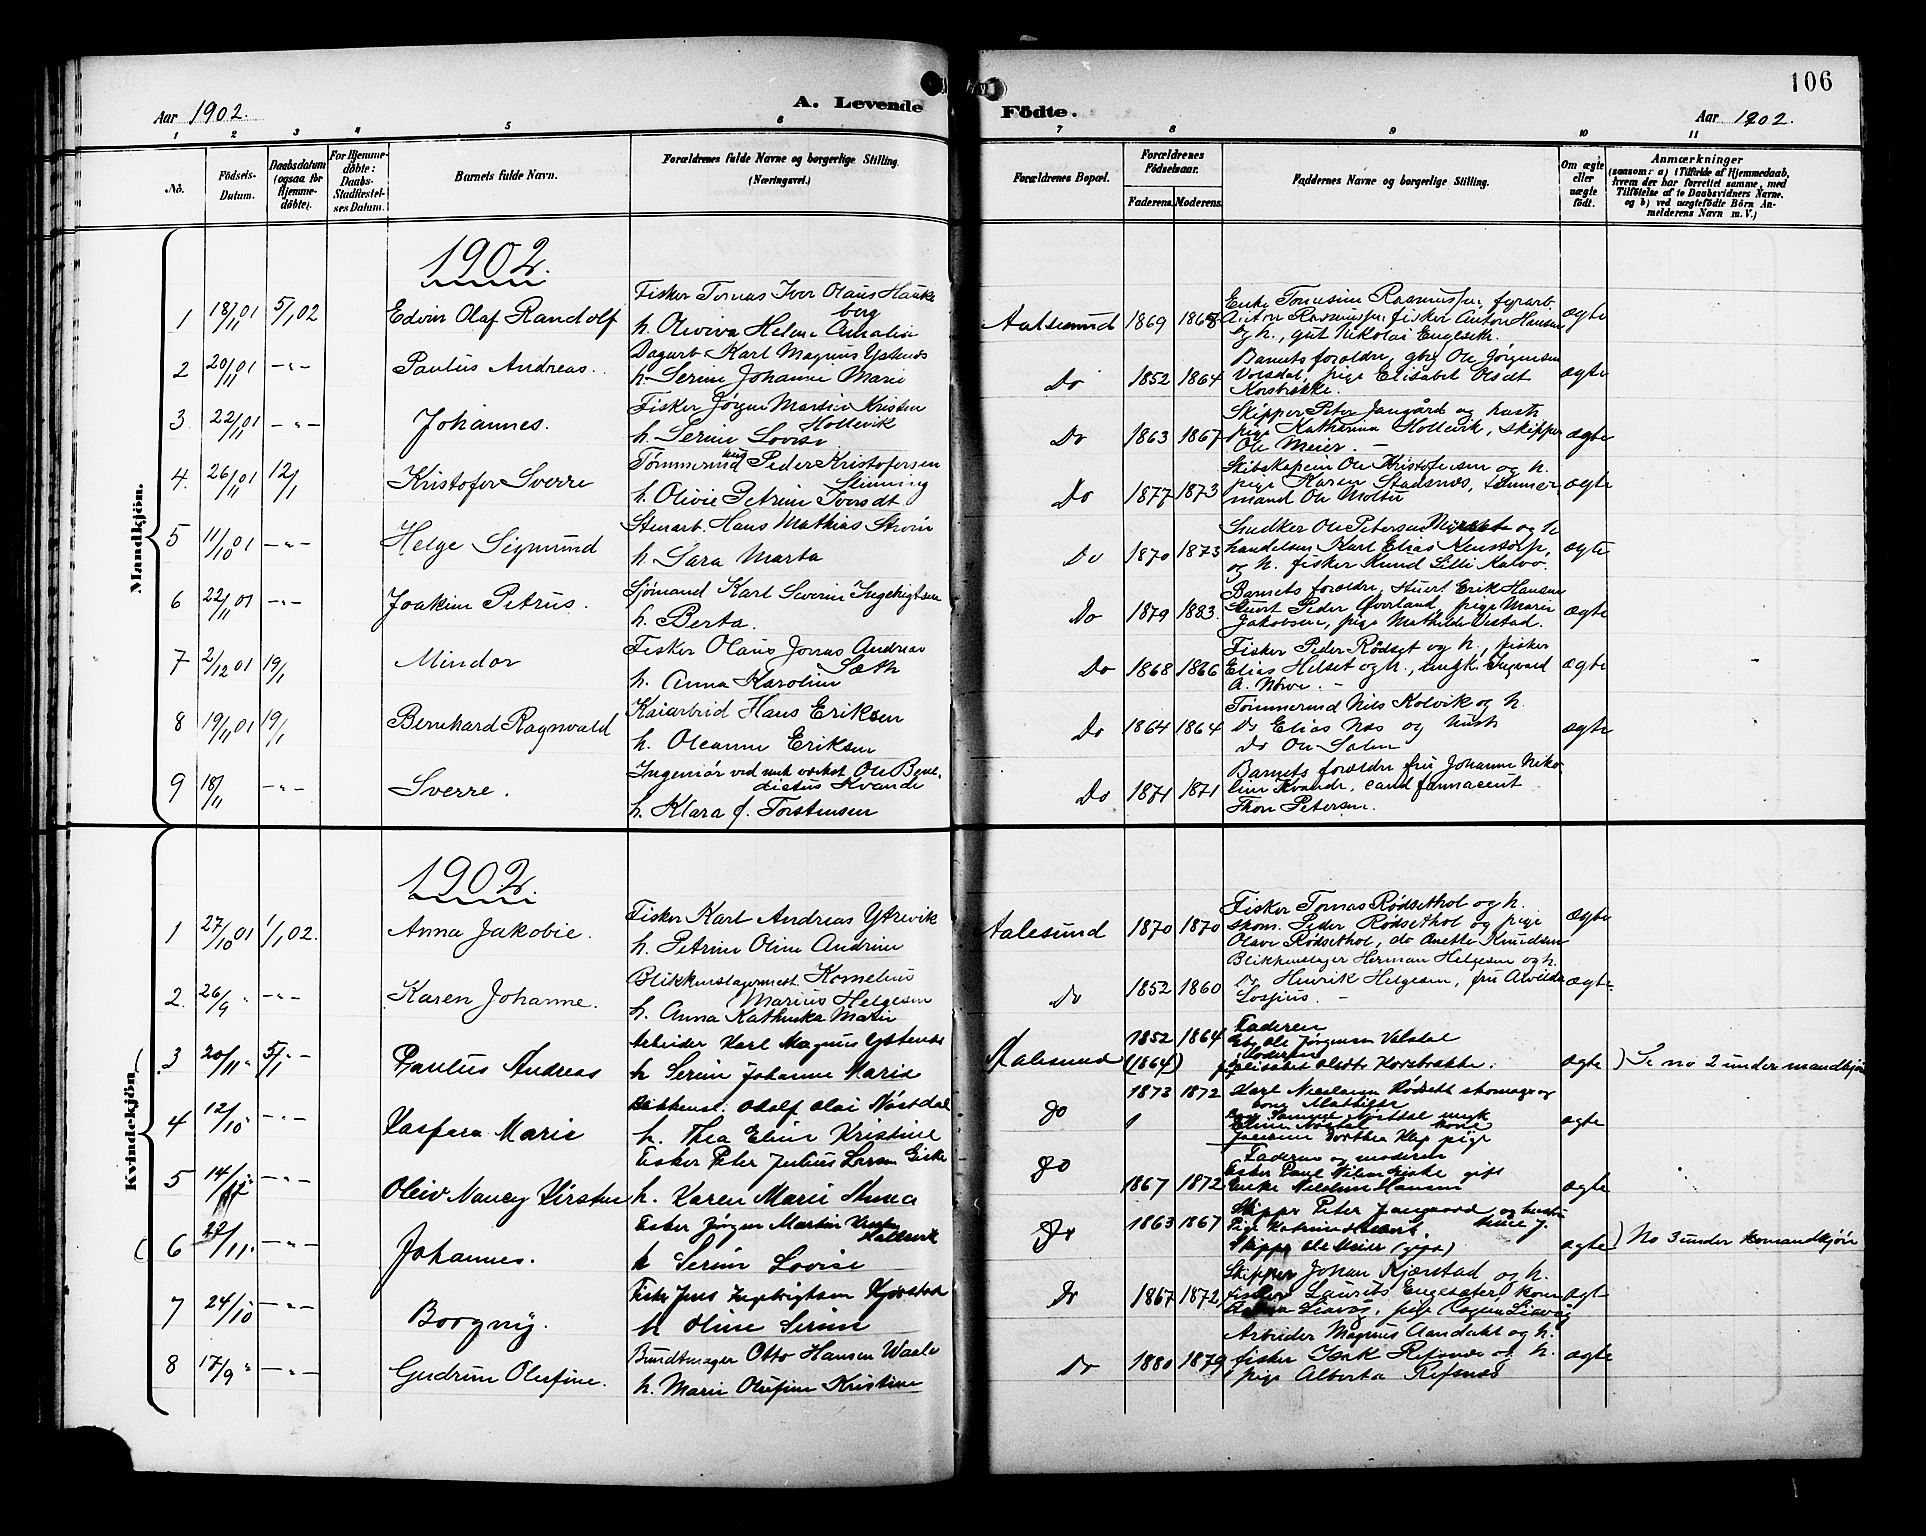 106
Aar 1902.
A. Levende
Födte.
Aar 1902.
1 2 3 4 5 6 7 8 9 10 11
No.
Födsels-
Datum.
Daabsdatum
(ogsaa for
Hjemme-
döbte).
For Hjemme-
döbte:
Daabs-
Stadfæstel-
ses Datum.
Barnets fulde Navn.
Forældrenes fulde Navne og borgerlige Stilling.
(Næringsvei.)
Forældrenes Bopæl.
Forældrenes
Födselsaar.
Faderens. Moderens.
Faddernes Navne og borgerlige Stilling.
Om ægte
eller
uægte
födt.
Anmærkninger
(saasom: a) i Tilfælde af Hjemmedaab,
hvem der har forrettet samme, med
Tilföielse af to Daabsvidners Navne.
og b) ved uægtefödte Börn An-
melderens Navn m. V.)
Mandkjön.
1902.
1 18/11 01 5/1 02 Edvin Olaf Randolf
Fisker Tomas Iver Olaus Hauke
berg
h. Oliviva Helene Amalie
Aalesund 1869 1868
Enke Tomesine Rasmussen, fyrarb
Anton Rasmussen, fisker Anton Hansen
og h., gut Nikolai Engeseth.
ægte
2 20/11 01 -"- Paulus Andreas.
Dagarb. Karl Magnus Ystenes
h. Serine Johanne Marie
Do 1852 1864
Barnets forældre, gbr Ole Jørgensen
Volsdal, pige Elisabet Olsdt
Korsbrekke.
ægte
3 22/11 01 -"- Johannes.
Fisker Jørgen Martin Kristen
Hollevik
h. Serine Lovise
Do 1863 1867
Skipper Peter Jangård og hustr
pige Katharina Hollevik, skipper
Ole Meier. -
ægte
4. 26/11 01 12/1 Kristofer Sverre
Tømmermand Peder Kristofersen
Slinning
h. Olivie Petrine Iversdt
Do 1877 1873
Skibskaptein Ole Kristofersen og h.
pige Karen Stadsnes, tømmer
mand Ole Moltu
ægte
5 11/10 01 -"- Helge Sigmund
Stenarb. Hans Mathias Strøm
h. Sara Marta
Do 1870 1873
Snedker Ole Petersen og h
handelsm. Karl Elias
og h. fisker Knud Silli Kalvø.
ægte
6 22/11 01 -"- Joakim Petrus.
Sjømand Karl Severin Ingebrigtsen
h. Berta.
Do 1879 1883.
Barnets forældre, stuert Erik Hansen
stuert Peder Øverland, pige Marie
Jakobsen, pige Mathilde Vestad.
ægte
7 2/12 01 19/1 Mindor
Fisker Olaus Jonas Andreas
Sæth
h. Anna Karoline
Do 1868 1866
Fisker Peder Rødset og h., fisker
Elias Helset og h., ungk. Sigvard
A. Nørve. -
ægte
8 19/11 01 19/1 Bernhard Ragnvald
Kaiarbeid Hans Eriksen
h. Oleanne Eriksen
Do 1864 1864
Tømmermd Nils Kolvik og h.
Do Elias Næs og hustr
Do Ole Solem
ægte
9 18/11 -"- Sverre.
Ingeniør ved mek værkst. Ole Bene-
dictus Kvande
h. Klara f. Torstensen
Do 1871 1871
Barnets forældre fru Johanne Niko-
line Kvande, cand farmaceut
Thor Petersen.
Kvindekjön.
1902.
1 27/10 01 1/1 02. Anna Jakobie.
Fisker Karl Andreas Ytrevik
h. Petrine Oline Andrine
Aalesund 1870 1870
Fisker Tomas Rødsethol og h.
skom. Peder Rødsethol og pige
Olave Rødsethol, do Anette Knudsen
ægte
2. 26/9 " -"- Karen Johanne.
Blikkenslagermest. Kornelius
Marius Helgesen
h. Anna Kathinka Marie
Do 1852 1860
Blikkenslager Herman Helgesen og h.
Do Henrik Helgesen, fru Alvilda
Losjius. -
ægte
3 20/11 " 5/1 -"- Paulus Andreas
Arbeider Karl Magnus Ystenes
h Serine Johanne Marie
Aalesund 1852 1864 (1864)
Faderen
Gbr Ole Jørgensen Valsdal
Moderen
pige Elisabet Olsdtr Korsbrække.
ægte ) Se no 2 under mandkjøn
4 12/10 " -"- Kaspara Marie
Blikkensl. Adolf Olai Nøstdal
h. Thea Eline Kristine
Do 1873 1872
Karl Nicolaisen Rødseth skomager og
kone Mathilde
Samuel Nøstdal ungk
Eline Nøstdal kone
Dorthea Klep pige
ægte
5 14/11 " -"- Oleiv Nancy Kirsten
Fisker Peter Julius Larsen Giske
h. Karen Marie Anna
Do 1867 1872
Faderen og moderen
Fisker Paul Nilsen Giske gift
Enke Nicoline Hansen
ægte
6 22/11 " -"- Johannes.
Fisker Jørgen Martin Kristen
Hollevik
h Serine Lovise
Do 1863 1867
Skipper Peter Jangaard og hustru
Pige
Skipper Ole Meier (gift)
ægte ) No 3 under mandkjøn
7 24/10 -"- Borgny.
Fisker Jens Ingebrigtsen Kjørstad
h Oline Serine
Do 1867 1872
Skipper Johan Kjærstad og h.
fisker Laurits Engesæter kone
ægte
8 17/9 " -"- Gudrun Olufine.
Bundtmager Otto Hansen Waale
h. Marie Olufine Kristine
Do 1880 1879
Arbeider Magnus Aandahl og h.
fisker Isak Refsnes og h.
pige Alberta Refsnes
ægte